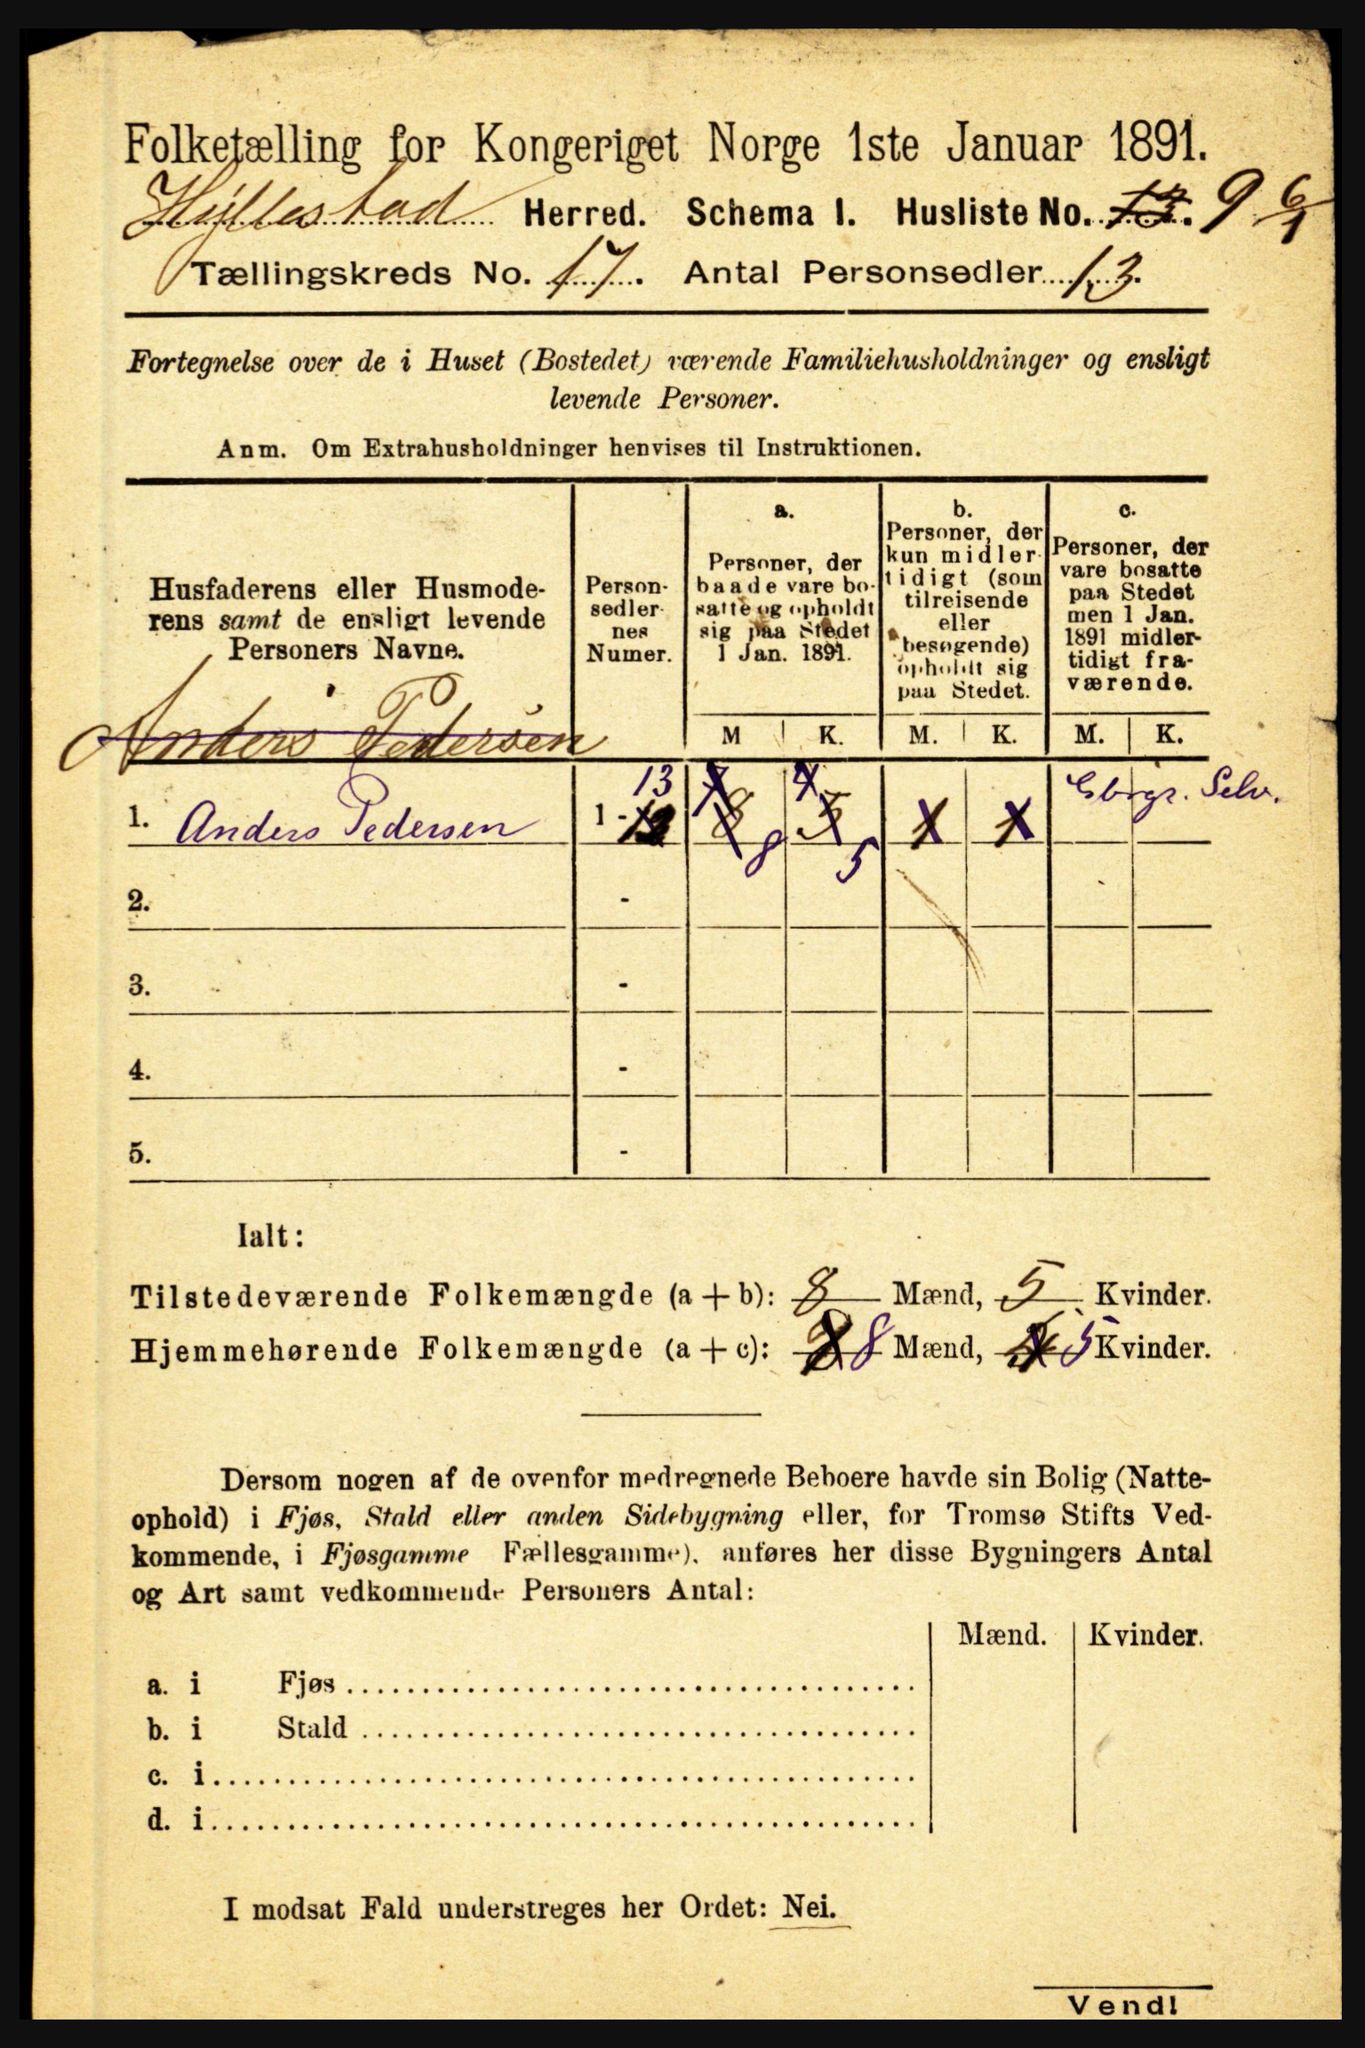 Folketælling for Kongeriget Norge 1ste Januar 1891.
Hyllestad Herred. Schema I. Husliste No. 13. 9
Tællingskreds No. 17. Antal Personsedler 13.
Fortegnelse over de i Huset (Bostedet) værende Familiehusholdninger og ensligt
levende Personer.
Anm. Om Extrahusholdninger henvises til Instruktionen.
Husfaderens eller Husmode-
rens samt de ensligt levende
Personers Navne.
Person-
sedler
nes
Numer.
a.
Personer, der
baade vare bo-
satte og opholdt
sig paa Stedet
1 Jan. 1891.
b.
Personer, der
kun midler-
tidigt (som
tilreisende
eller
besøgende)
opholdt sig
paa Stedet.
c.
Personer, der
vare bosatte
paa Stedet
men 1 Jan.
1891 midler-
tidigt fra-
værende.
M K. M. K. M. K.
Anders Pedersen
1. Anders Pedersen 1 - 13 8 5 1 1
2. -
3. -
4. -
5. -
Ialt:
Tilstedeværende Folkemængde (a + b): 8 Mænd, 5 Kvinder.
Hjemmehørende Folkemængde (a + c): 8 Mænd, 5 Kvinder.
Dersom nogen af de ovenfor medregnede Beboere havde sin Bolig (Natte-
ophold) i Fjøs, Stald eller anden Sidebygning eller, for Tromsø Stifts Ved-
kommende, i Fjøsgamme Fællesgamme), anføres her disse Bygningers Antal
og Art samt vedkommende Personers Antal:
Mænd. Kvinder.
a. i Fjøs
b. i Stald
c. i
d. i
I modsat Fald understreges her Ordet: Nei.
Vend!